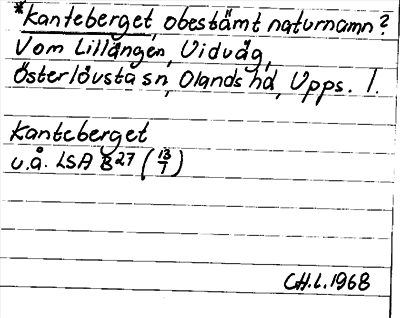 *Kanteberget, obestämt naturnamn?
Vom Lillängen, Vidvåg,
Österlövsta sn, Olands hd, Upps. l.
Kanteberget
u.å. LSA B27 (13/7)
CH.L.1968